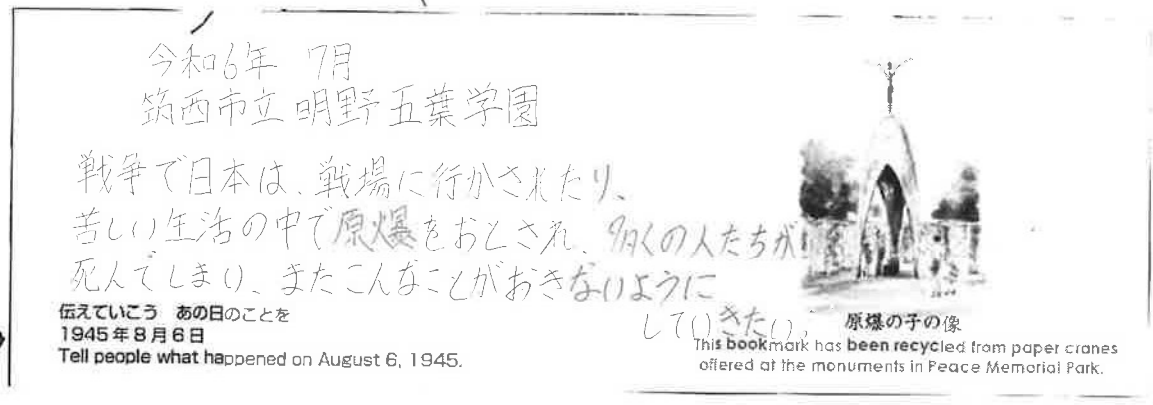 令和6年 7月
筑西市立明野五葉学園
戦争で日本は、戦場に行かされたり、
苦しい生活の中で原爆をおとされ、多くの人たちが
死んでしまり、またこんなことがおきないように
していきたい。
伝えていこう あの日のことを
1945年8月6日
Tell people what happened on August 6, 1945.
原爆の子の像
This bookmark has been recycled from paper cranes
offered at the monuments in Peace Memorial Park.